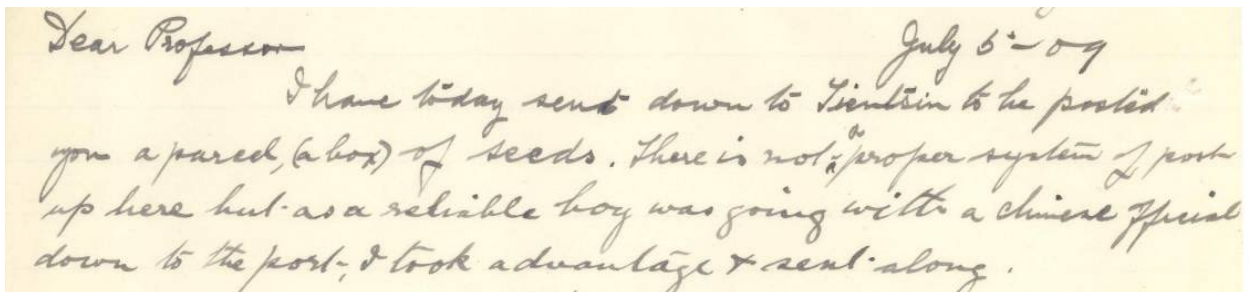 Dear Professor July 5-09
I have today sent down to Tientsin to be posted
you a parcel, (a box) of seeds. There is not a proper system of post
up here but as a reliable boy was going with a chinese official
down to the port, I took advantage & sent along.